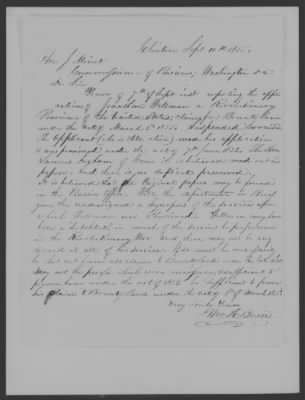 Clinton Sept 11th 1855.
Hon J Minot
Commissioner of Pensions, Washington
Dr Sir
Yours of 7th of Sept inst rejecting the appli
cation of Jonathan Wellman a Revolutionary
Pensioner of the United States, claiming for Bounty Land
under the Act of March 3d 1855. Suspended
The Applicant (who is still alive) made his application
& was pensioned under the act of 7th June 1832. The Hon
Samuel Ingham of Conn it is believed made out his
papers And there is no duplicate preserved.
It is believed that the Original papers may be found
in the Pension Office. Will the department in Brief
give the undersigned a Synopsis of the services upon
which Wellman was Pensioned. Wellman may have
been a Substitute in much of the service he performed
in the Revolutionary War and there may not be any
record at all of his services. But must he necessarily
be cut out from all claim to Bounty Land
May not the proofs which were necessary & sufficient to
pension him under the act of 1832 be Sufficient to prove
his claim to Bounty Land under the act of 3d of March 1855.
Very Truly Yours
Wm H. Buell